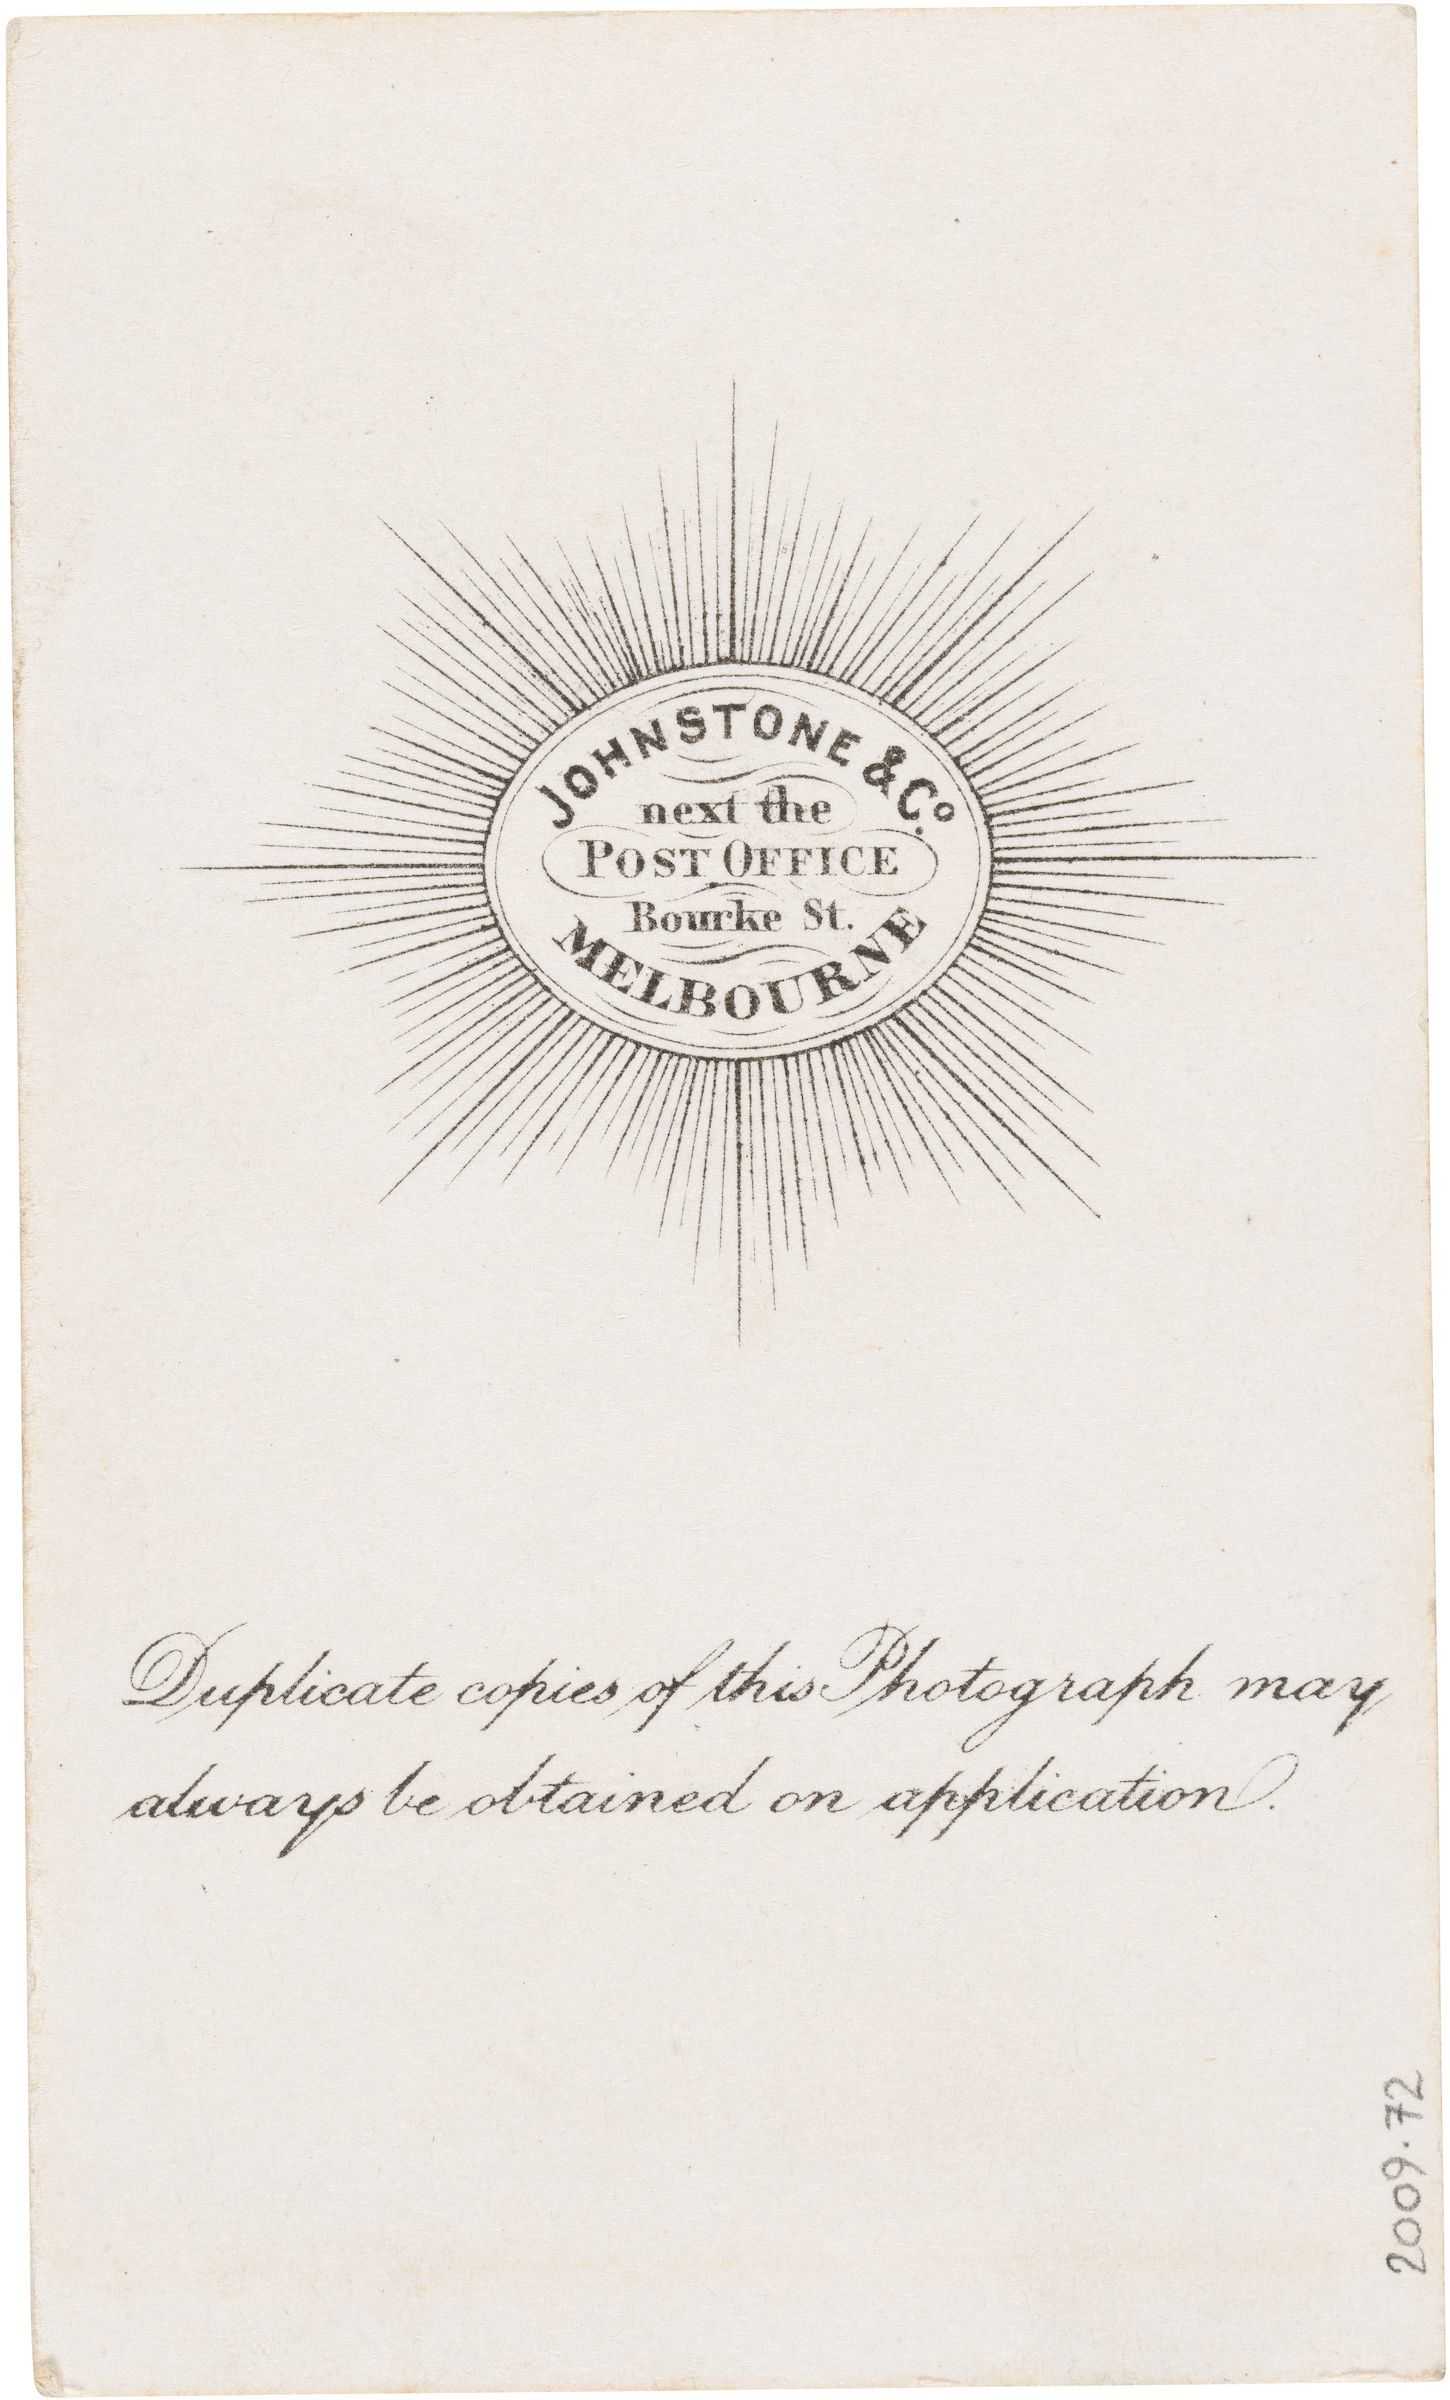 JOHNSTONE & Co.
next the
POST OFFICE
Bourke St.
MELBOURNE
Duplicate copies of this Photograph may
always be obtained on application.
2009.72